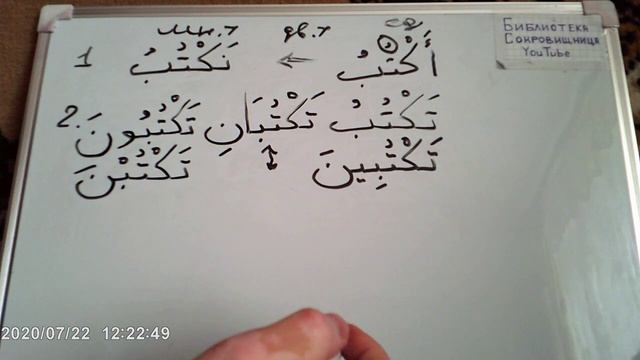 мн.ч дв.ч ед
1 نَكْتُبُ ← أَكْتُبُ
2. تَكْتُبُ تَكْتُبَانِ تَكْتُبُونَ
تَكْتُبِينَ ↕ تَكْتُبْنَ
Библиотека
Сокровищница
YouTube
2020/07/22 12:22:49